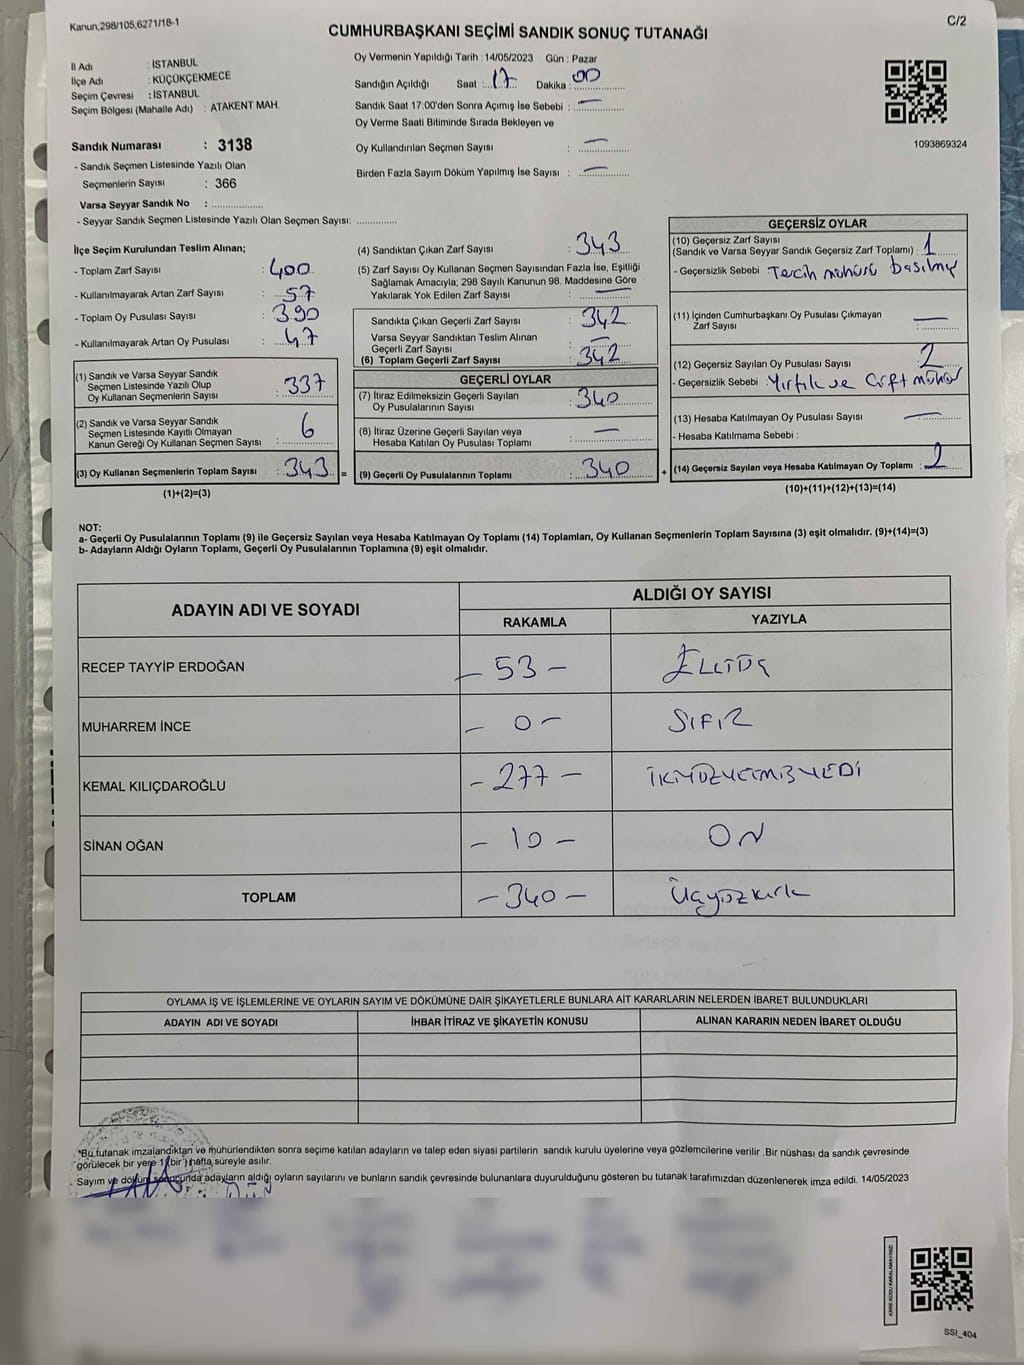 Kanun,298/105,6271/18-1
C/2
CUMHURBAŞKANI SEÇİMİ SANDIK SONUÇ TUTANAĞI
İl Adı : İSTANBUL
İlçe Adı : KÜÇÜKÇEKMECE
Seçim Çevresi : İSTANBUL
Seçim Bölgesi (Mahalle Adı) : ATAKENT MAH.
Sandık Numarası : 3138
- Sandık Seçmen Listesinde Yazılı Olan
Seçmenlerin Sayısı : 366
Varsa Seyyar Sandık No : ..............
- Seyyar Sandık Seçmen Listesinde Yazılı Olan Seçmen Sayısı: ............
Oy Vermenin Yapıldığı Tarih : 14/05/2023 Gün : Pazar
Sandığın Açıldığı Saat : 17 Dakika : 00
Sandık Saat 17:00'den Sonra Açımış İse Sebebi : —
Oy Verme Saati Bitiminde Sırada Bekleyen ve
Oy Kullandırılan Seçmen Sayısı : —
Birden Fazla Sayım Döküm Yapılmış İse Sayısı : —
1093869324
İlçe Seçim Kurulundan Teslim Alınan;
- Toplam Zarf Sayısı : 400
- Kullanılmayarak Artan Zarf Sayısı : 57
- Toplam Oy Pusulası Sayısı : 390
- Kullanılmayarak Artan Oy Pusulası : 47
(1) Sandık ve Varsa Seyyar Sandık
Seçmen Listesinde Yazılı Olup
Oy Kullanan Seçmenlerin Sayısı : 337
(2) Sandık ve Varsa Seyyar Sandık
Seçmen Listesinde Kayıtlı Olmayan
Kanun Gereği Oy Kullanan Seçmen Sayısı : 6
(3) Oy Kullanan Seçmenlerin Toplam Sayısı : 343 =
(1)+(2)=(3)
(4) Sandıktan Çıkan Zarf Sayısı : 343
(5) Zarf Sayısı Oy Kullanan Seçmen Sayısından Fazla İse, Eşitliği
Sağlamak Amacıyla; 298 Sayılı Kanunun 98. Maddesine Göre
Yakılarak Yok Edilen Zarf Sayısı : —
Sandıkta Çıkan Geçerli Zarf Sayısı : 342
Varsa Seyyar Sandıktan Teslim Alınan
Geçerli Zarf Sayısı : —
(6) Toplam Geçerli Zarf Sayısı : 342
GEÇERLİ OYLAR
(7) İtiraz Edilmeksizin Geçerli Sayılan
Oy Pusulalarının Sayısı : 340
(8) İtiraz Üzerine Geçerli Sayılan veya
Hesaba Katılan Oy Pusulası Toplamı : —
(9) Geçerli Oy Pusulalarının Toplamı : 340 +
GEÇERSİZ OYLAR
(10) Geçersiz Zarf Sayısı
(Sandık ve Varsa Seyyar Sandık Geçersiz Zarf Toplamı) : 1
- Geçersizlik Sebebi : Tercih mühürü basılmış
(11) İçinden Cumhurbaşkanı Oy Pusulası Çıkmayan
Zarf Sayısı : —
(12) Geçersiz Sayılan Oy Pusulası Sayısı : 2
- Geçersizlik Sebebi : Yırtık ve Çift mühür
(13) Hesaba Katılmayan Oy Pusulası Sayısı : —
- Hesaba Katılmama Sebebi :
(14) Geçersiz Sayılan veya Hesaba Katılmayan Oy Toplamı :
(10)+(11)+(12)+(13)=(14)
NOT:
a- Geçerli Oy Pusulalarının Toplamı (9) ile Geçersiz Sayılan veya Hesaba Katılmayan Oy Toplamı (14) Toplamları, Oy Kullanan Seçmenlerin Toplam Sayısına (3) eşit olmalıdır. (9)+(14)=(3)
b- Adayların Aldığı Oyların Toplamı, Geçerli Oy Pusulalarının Toplamına (9) eşit olmalıdır.
ADAYIN ADI VE SOYADI
ALDIĞI OY SAYISI
RAKAMLA YAZIYLA
RECEP TAYYİP ERDOĞAN - 53 - ELLİÜÇ
MUHARREM İNCE - 0 - SIFIR
KEMAL KILIÇDAROĞLU - 277 - İKİYÜZYETMİŞYEDİ
SİNAN OĞAN - 10 - ON
TOPLAM - 340 - Üçyüzkırk
OYLAMA İŞ VE İŞLEMLERİNE VE OYLARIN SAYIM VE DÖKÜMÜNE DAİR ŞİKAYETLERLE BUNLARA AİT KARARLARIN NELERDEN İBARET BULUNDUKLARI
ADAYIN ADI VE SOYADI İHBAR İTİRAZ VE ŞİKAYETİN KONUSU ALINAN KARARIN NEDEN İBARET OLDUĞU
*Bu tutanak imzalandıktan ve mühürlendikten sonra seçime katılan adayların ve talep eden siyasi partilerin sandık kurulu üyelerine veya gözlemcilerine verilir .Bir nüshası da sandık çevresinde
görülecek bir yere 1 (bir ) hafta süreyle asılır.
. Sayım ve döküm sonucunda adayların aldığı oyların sayılarını ve bunların sandık çevresinde bulunanlara duyurulduğunu gösteren bu tutanak tarafımızdan düzenlenerek imza edildi. 14/05/2023
KARE KODU KARALAMAYINIZ!
SSİ_404